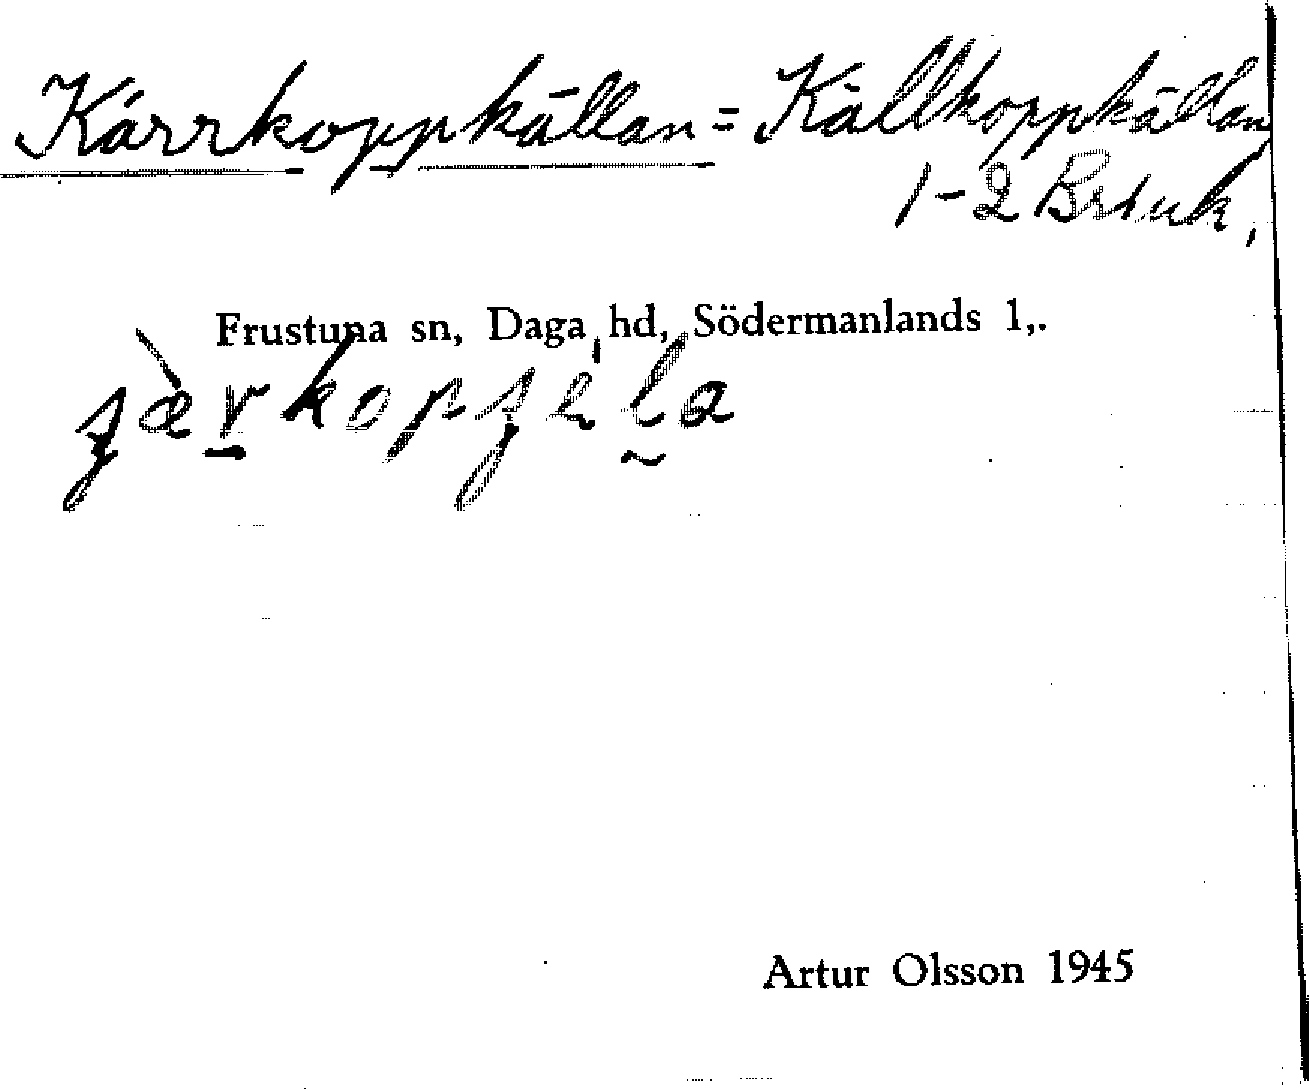 Kärrkoppkällan = Källkoppkällan
1-2 Bruk,
Frustuna sn, Daga hd, Södermanlands l,.
Artur Olsson 1945